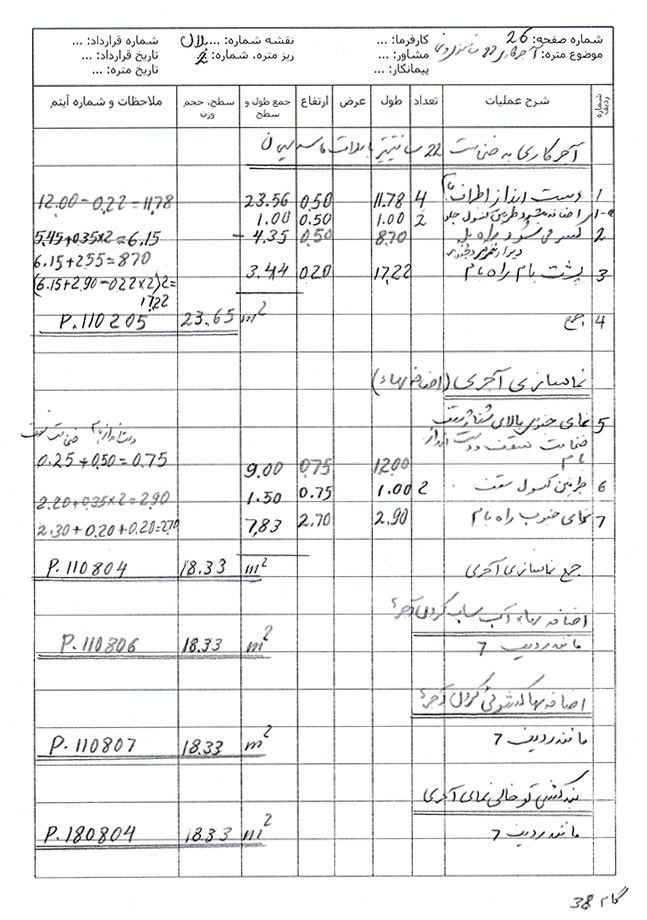 شماره صفحه: 26 کارفرما: ... نقشه شماره: ... پلان شماره قرارداد: ...
موضوع متره: آجرکاری 22 کارفرما: مشاور: ... ریز متره، شماره: 2 تاریخ قرارداد: ...
پیمانکار: ... تاریخ متره: ...
شماره ردیف شرح عملیات تعداد طول عرض ارتفاع جمع طول و سطح سطح، حجم وزن ملاحظات و شماره آیتم
آجرکاری به ضخامت 22 سانتیمتر با ملات ماسه سیمان
1 دست انداز اطراف بام 4 11.78 0.50 23.56 12.00-0.22=11.78
1-a اضافه میشود طرفین کنسول جلو 2 1.00 0.50 1.00
2 کسر می شود راه پله 8.70 0.50 -4.35 5.45+0.35×2=6.15
دیوار 6.15+2.55=8.70
3 پشت بام راه بام 17.22 0.20 3.44 (6.15+2.90-0.22×2)2=
17.22
4 جمع m² 23.65 P.110205
نماسازی آجری (اضافه بهاء)
5 نمای جنوبی بالای
ضخامت سقف و دست انداز دست انداز بام ضخامت سقف
بام 12.00 0.75 9.00 0.25+0.50=0.75
6 طرفین کنسول سقف 2 1.00 0.75 1.50 2.20+0.35×2=2.90
7 نمای جنوب راه بام 2.90 2.70 7.83 2.30+0.20+0.20=2.70
جمع نماسازی آجری m² 18.33 P.110804
اضافه بهاء آب ساب کردن آجر
مانند ردیف 7 m² 18.33 P.110806
اضافه بها کردن آجر
مانند ردیف 7 m² 18.33 P.110807
بندکشی توخالی نمای آجری
مانند ردیف 7 m² 18.33 P.180804
گام 38